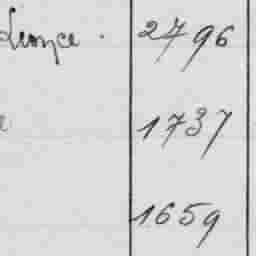 Leonce . 2796
1737
1659